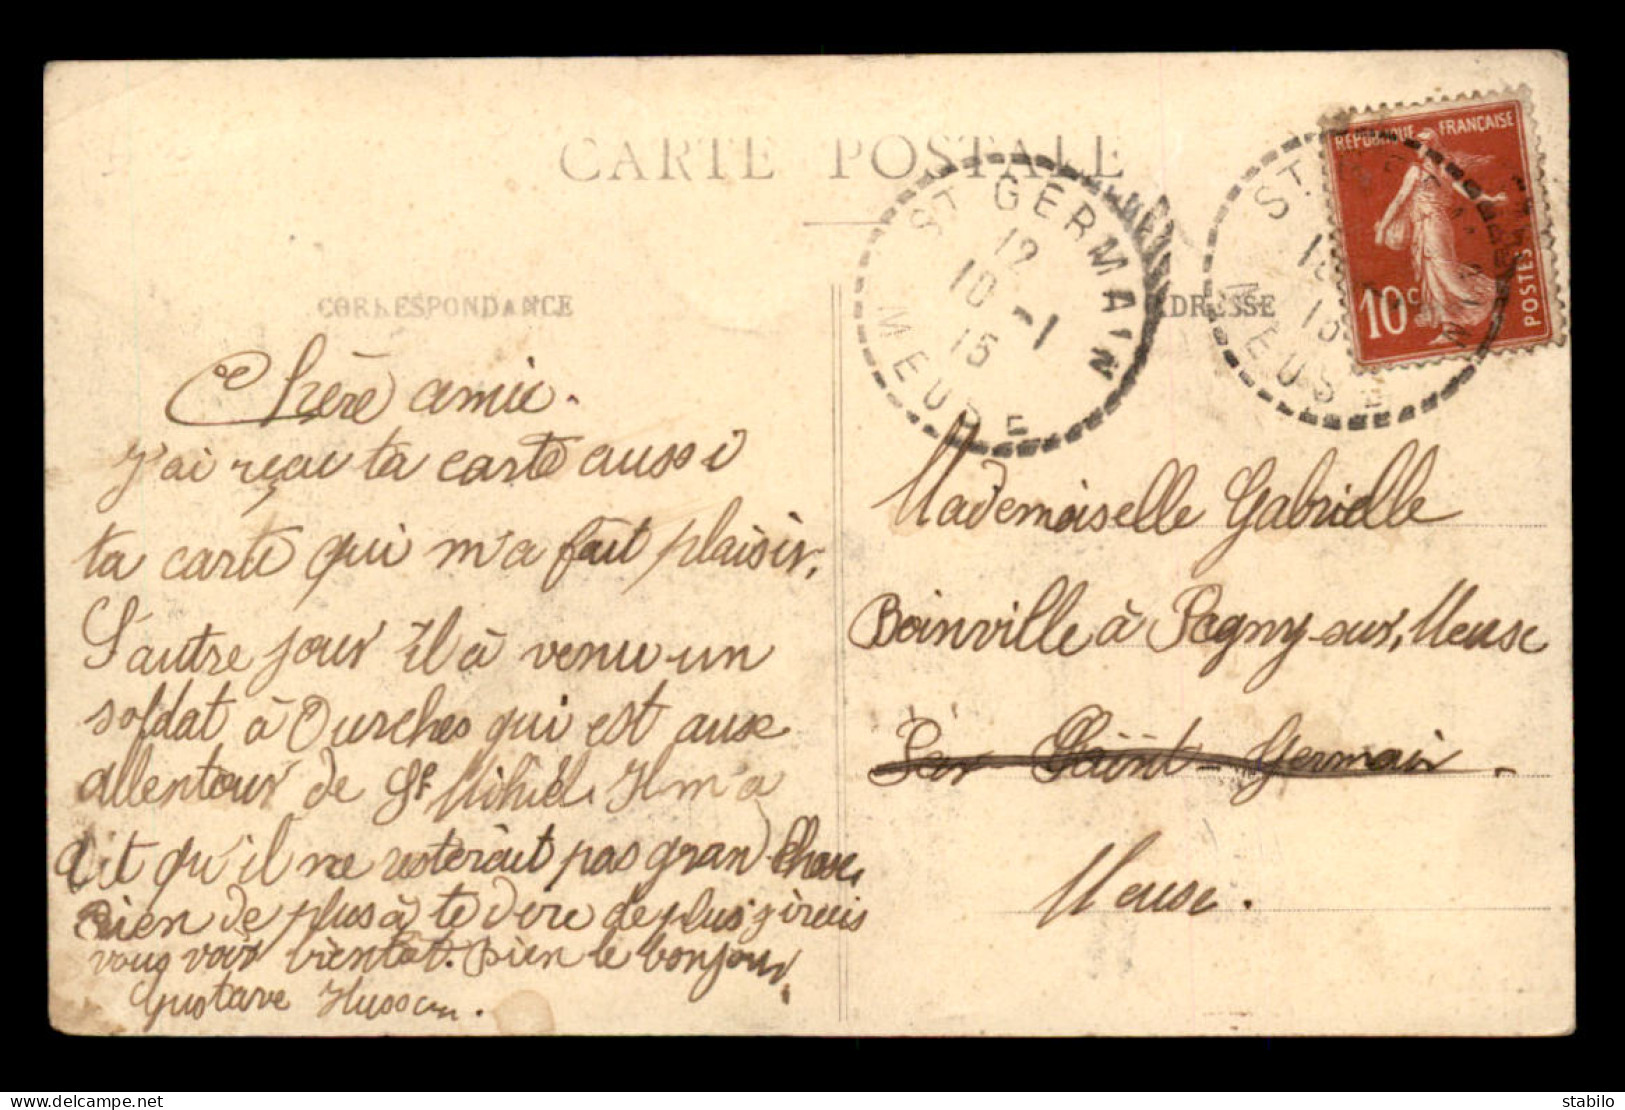 CARTE POSTALE
CORRESPONDANCE
ADRESSE
RÉPUBLIQUE FRANÇAISE
10c
POSTES
ST GERMAIN
12
10 -1
15
MEUSE
ST GERMAIN
15
MEUSE
Chère amie.
J'ai reçu ta carte aussi
ta carte qui m'a fait plaisir.
L'autre jour il à venu un
soldat à Ourches qui est aux
allentour de St Mihiel. Il m'a
dit qu'il ne resterait pas gran chose.
Rien de plus à te dire de plus j'irais
vous voir bientôt. Bien le bonjour
Gustave Husson.
Mademoiselle Gabrielle
Boinville à Pagny-sur-Meuse
Par Saint Germain.
Meuse.
delcampe.net
stabilo